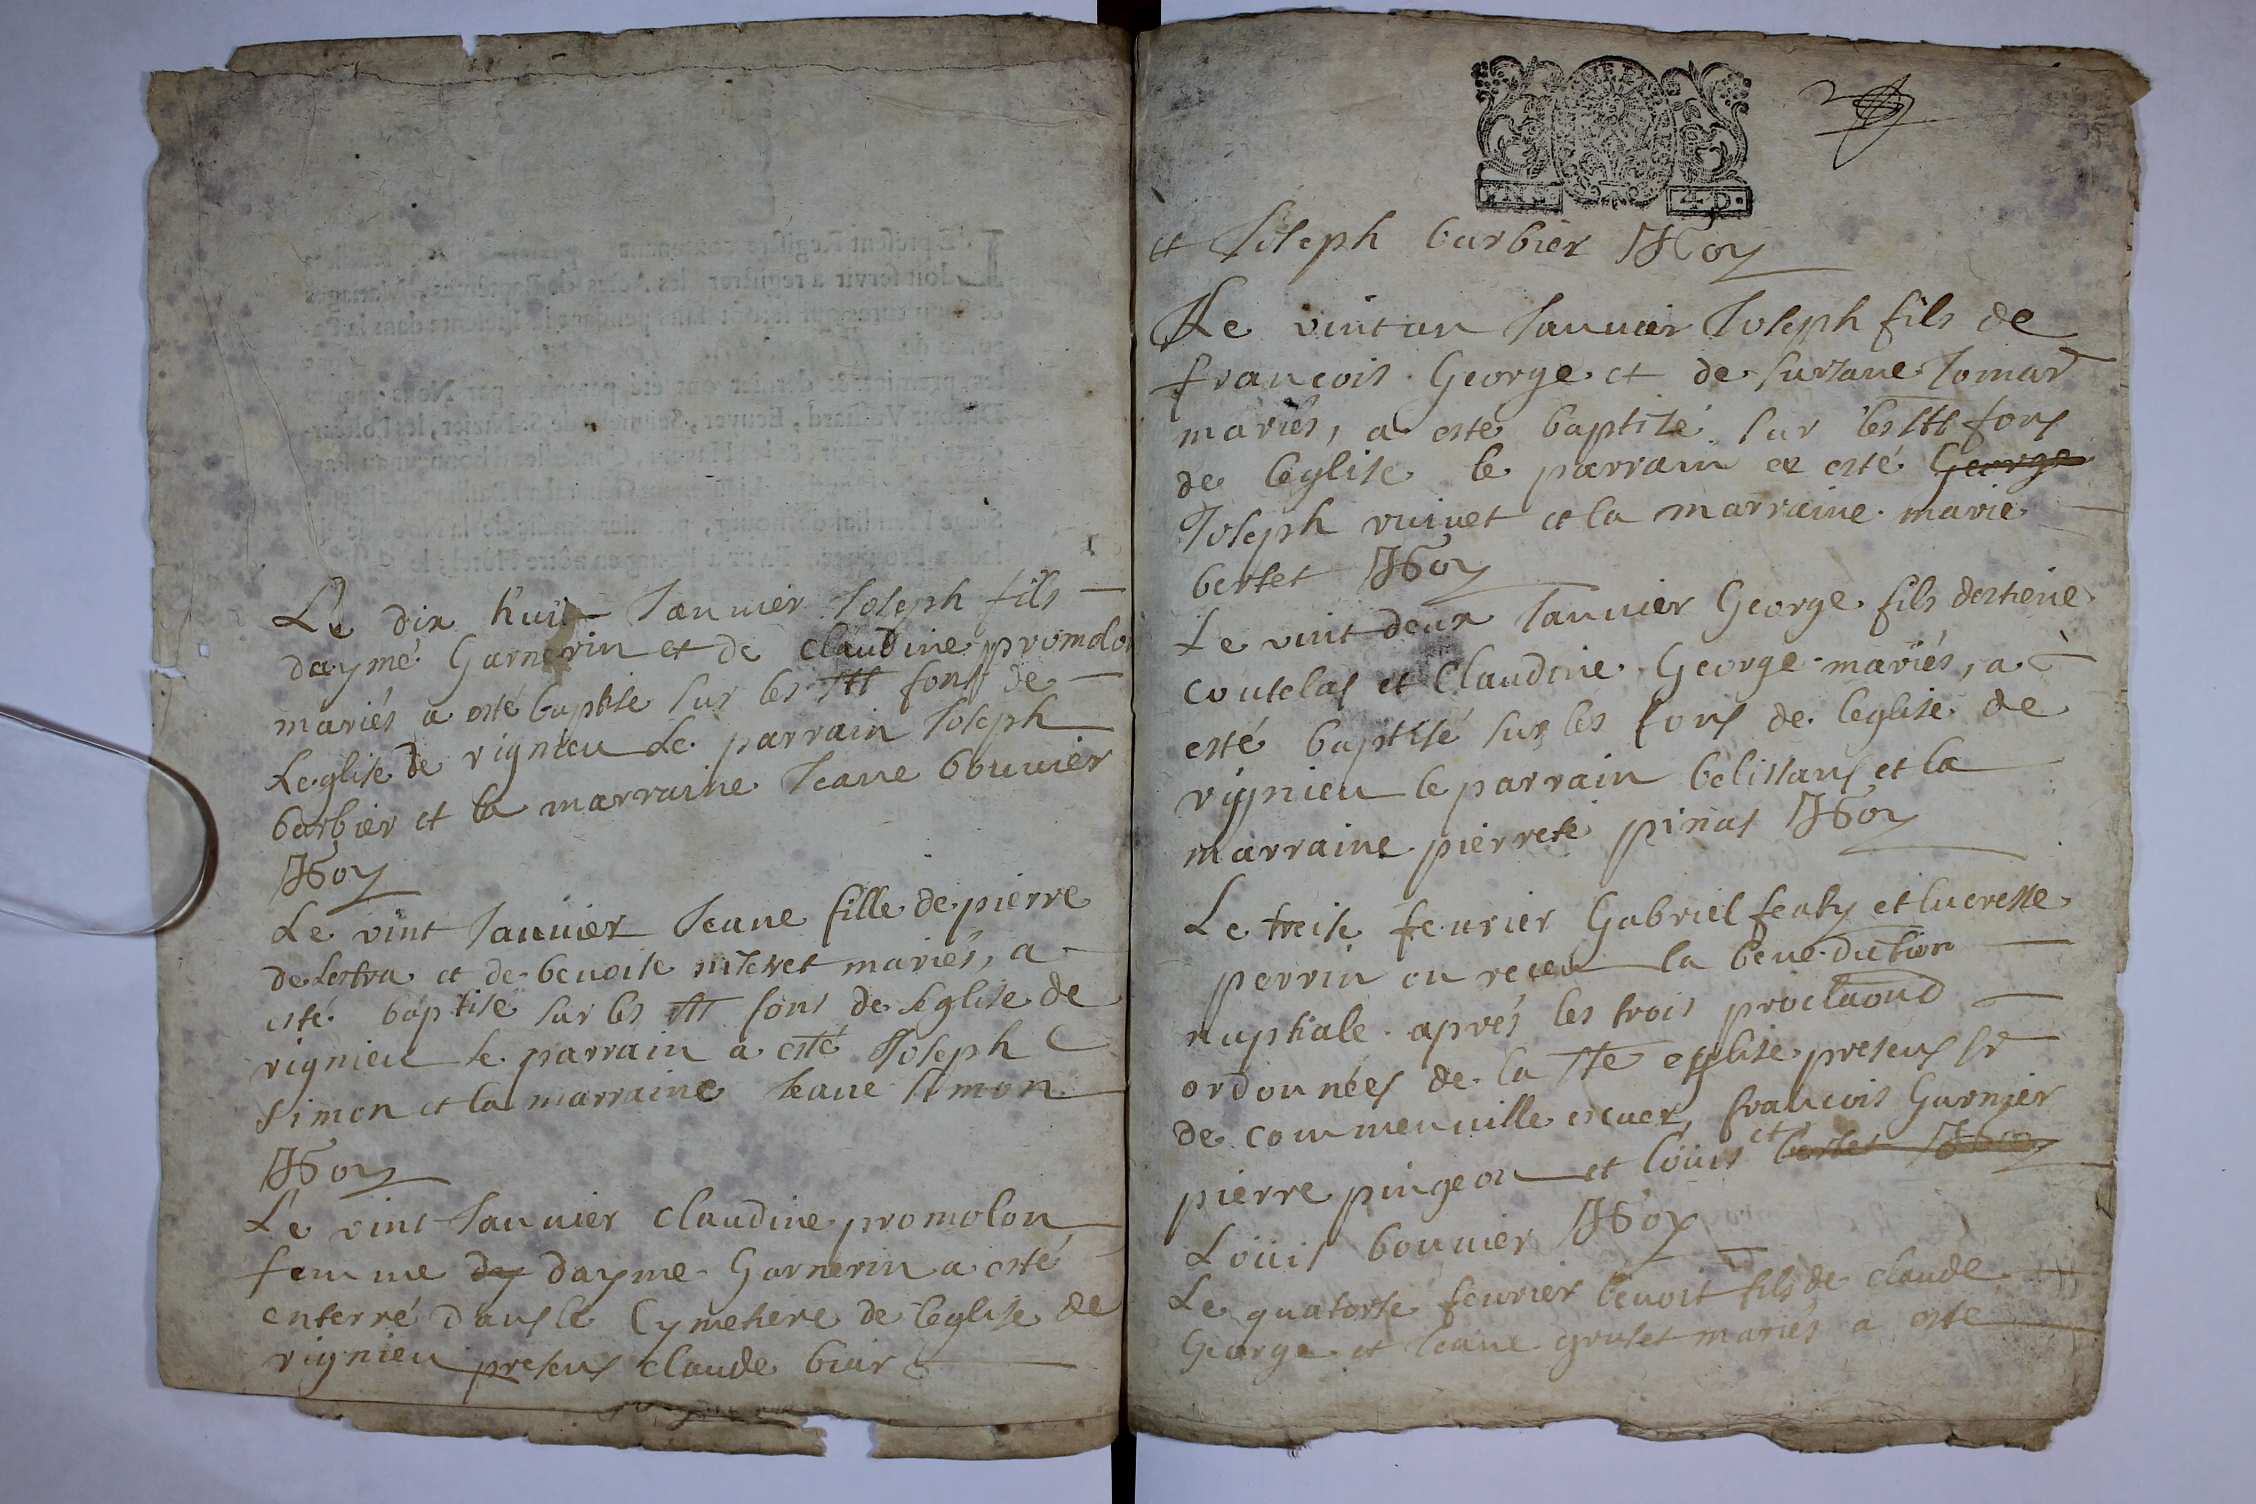 Le dix huit Januier Joseph fils
daymé Garnerin et de claudine promolon
mariés a esté baptise sur les stt fons de
Leglise de vignieu Le parrain Joseph
barbier et la marraine Jeane bouuier
Le vint Januier Jeane fille de pierre
de Lestra et de benoite mariés, a
esté baptise sur les stt fons de Leglise de
vignieu le parrain a esté Joseph
simon et la marraine Jeane simon
Le vint Januier claudine promolon
femme dy dayme Garnerin a esté
enterré dans le Cymetiere de leglise de
vignieu presens claude biar
4.D.
et Joseph barbier
Le vint un Januier Joseph fils de
francois George et de susane Jomar
mariés, a esté baptizé sur les stt fons
de leglise le parrain a esté George
Joseph vuinet et la marraine marie
bertet
Le vint deux Januier George fils destiene
coutelas et Claudine George mariés, a
esté baptisé sur les fons de leglise de
vignieu le parrain et la
marraine pierrete pinas
Le treise feurier Gabriel et lucresse
perrin on receu la benediction
nuptiale aprés les trois proclaond
ordonnées de la ste eglise presens sr
de commenuille escuer, francois Garnier
pierre pingeon et loüis et
Loüis bouuier
Le quatorse feurier benoit fils de claude
George et Jeane gruset mariés a esté